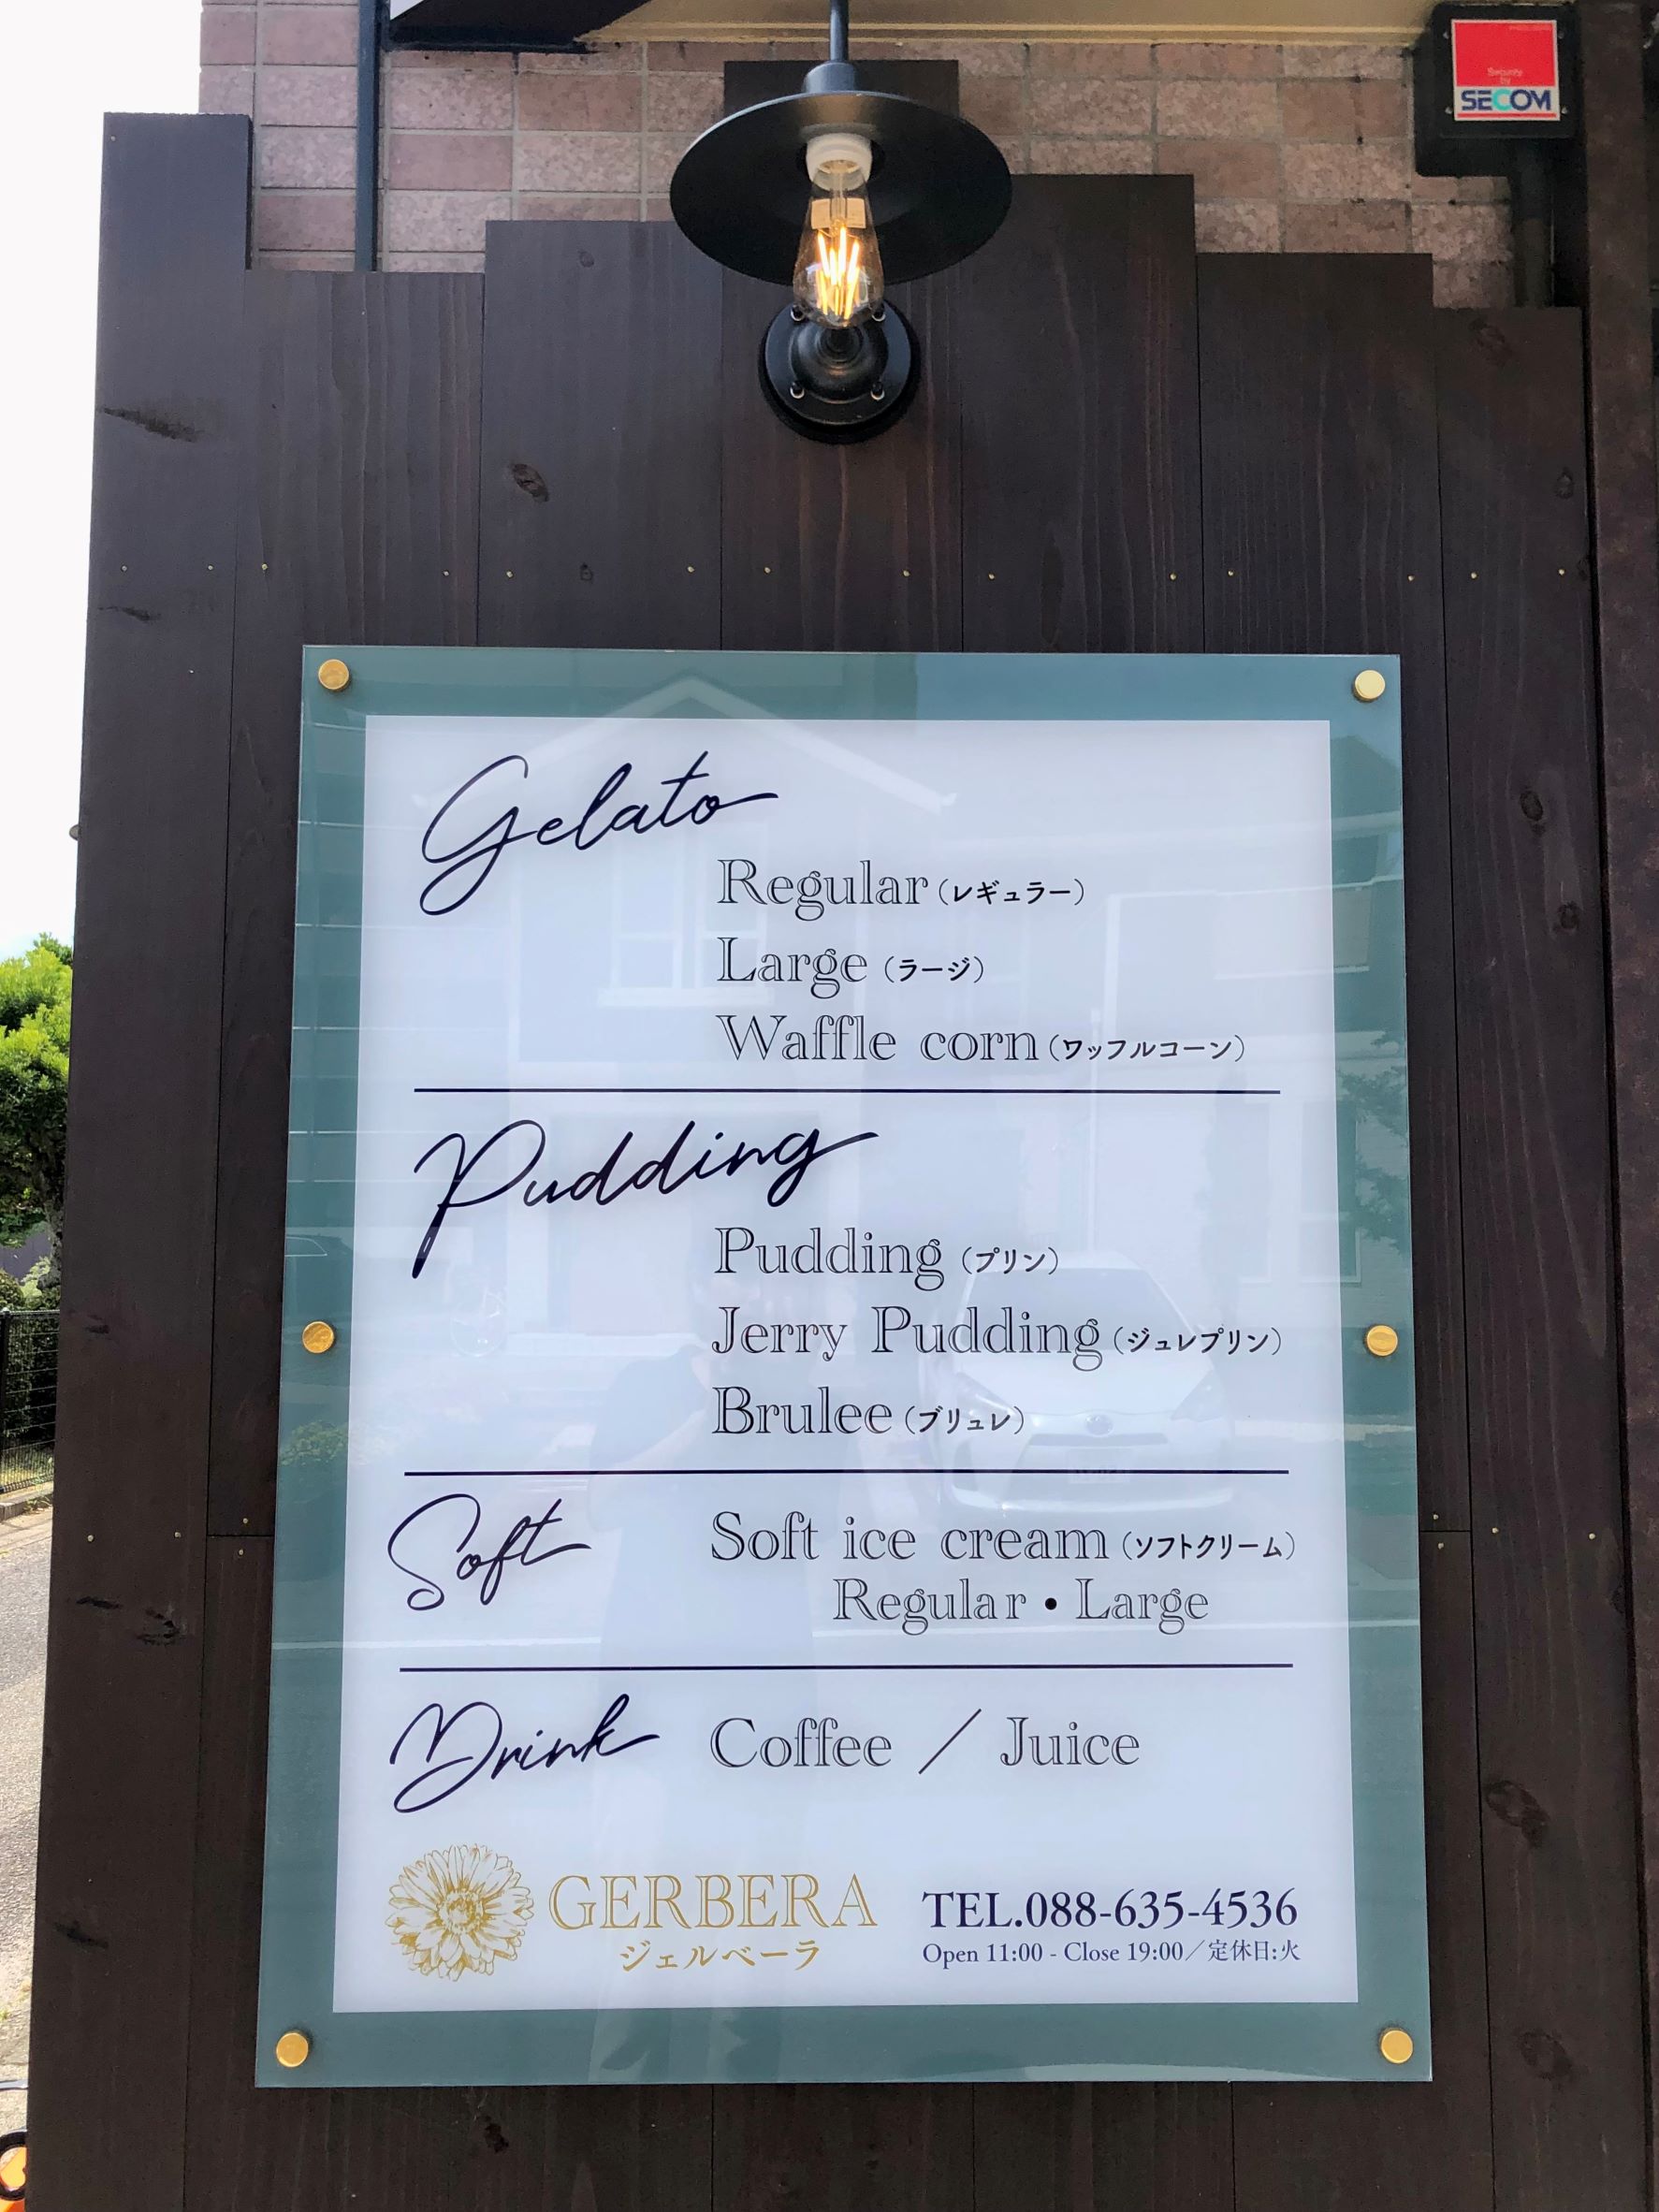 Security
by
SECOM
Gelato
Regular（レギュラー）
Large（ラージ）
Waffle corn（ワッフルコーン）
Pudding
Pudding（プリン）
Jerry Pudding（ジュレプリン）
Brulee（ブリュレ）
Soft
Soft ice cream（ソフトクリーム）
Regular・Large
Drink
Coffee ／ Juice
GERBERA
ジェルベーラ
TEL.088-635-4536
Open 11:00 - Close 19:00／定休日:火